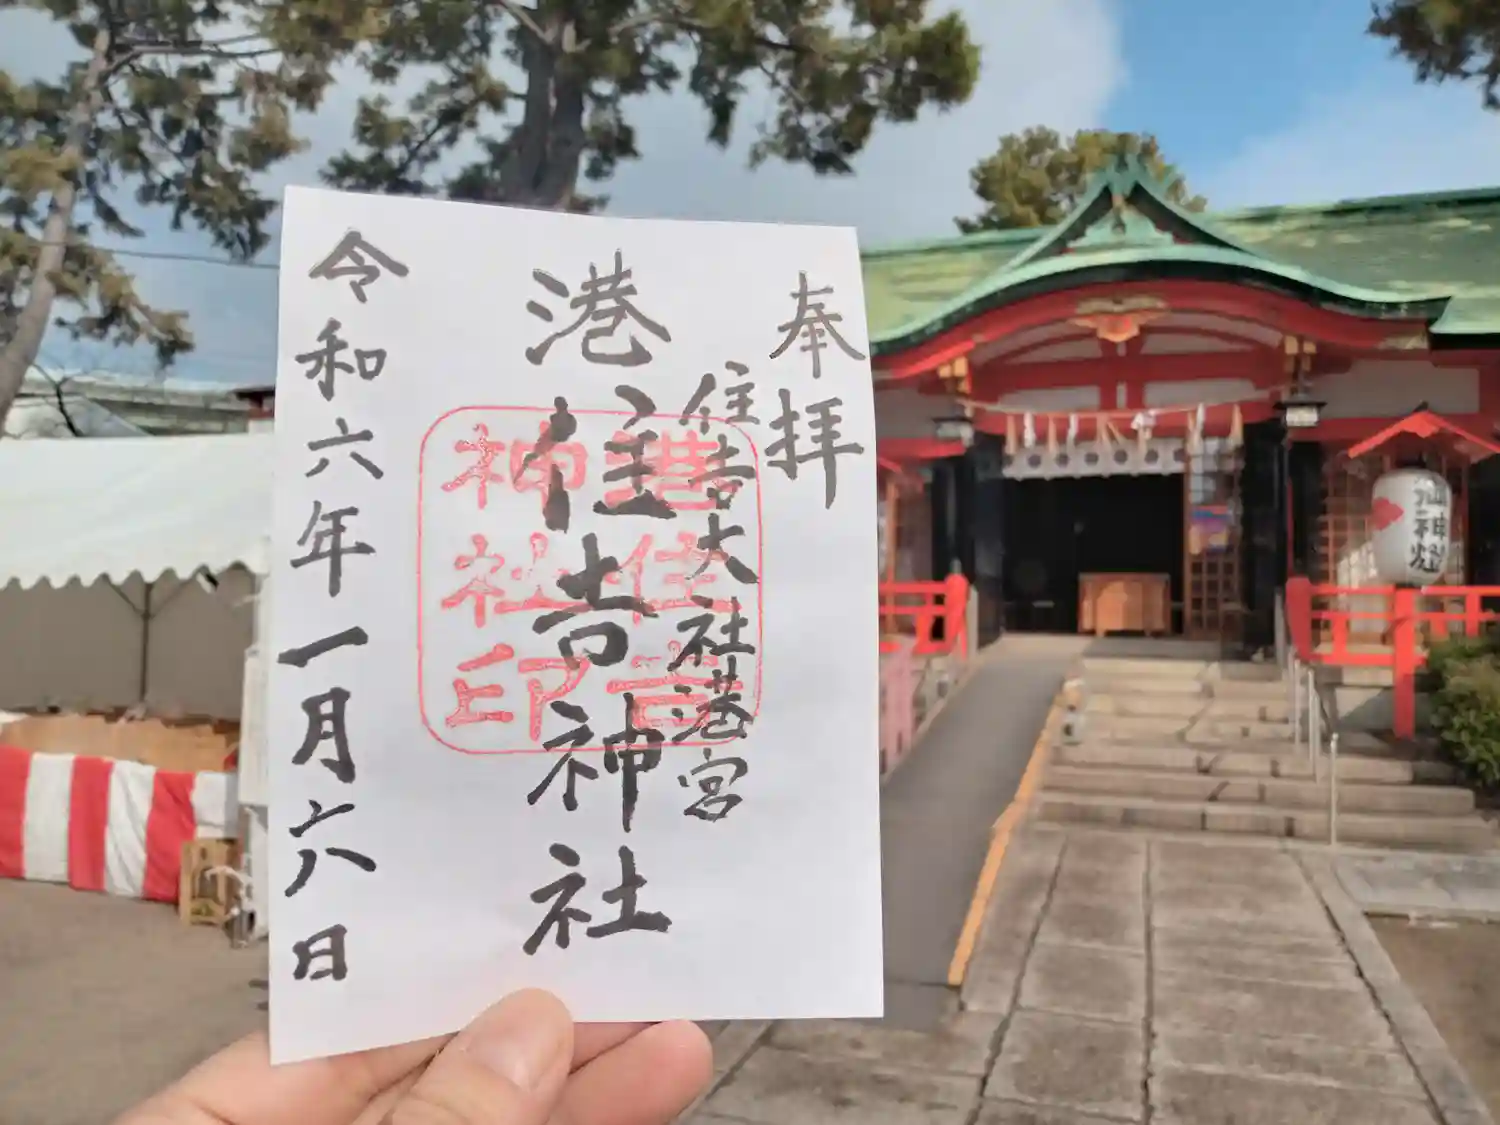 奉拝
住吉大社港宮
港住吉神社
港住吉
神社印
令和六年一月六八日
御神燈